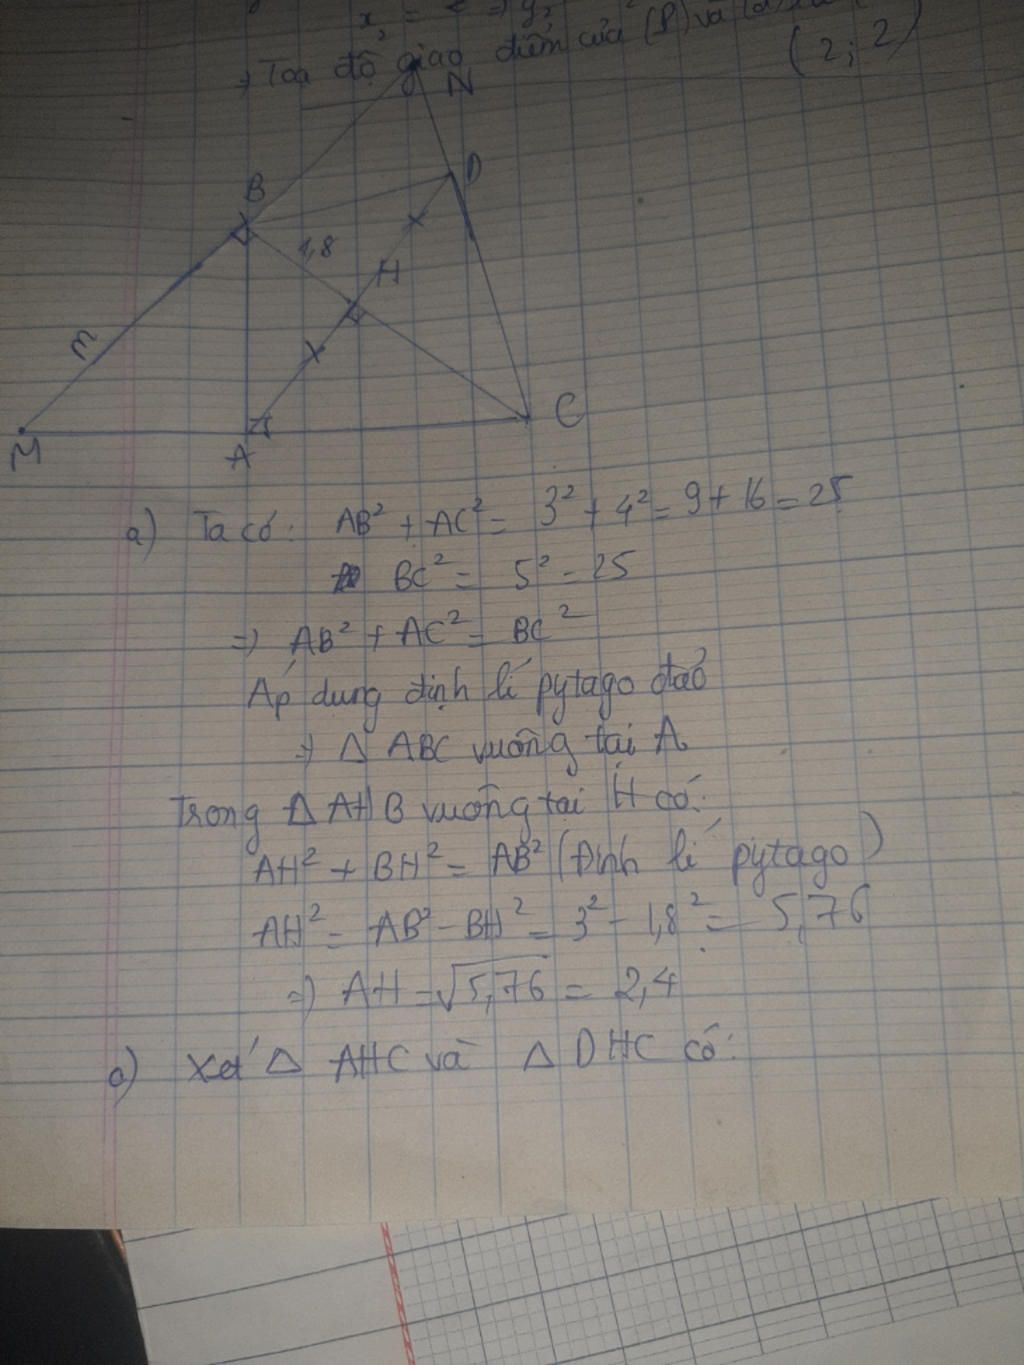 ⇒ Toạ độ giao điểm của (P) và
(2; 2)
N
B
D
1,8
H
m
C
M
A
a) Ta có: AB² + AC² = 3² + 4² = 9 + 16 = 25
BC² = 5² = 25
⇒ AB² + AC² = BC²
Áp dung định lí pytago đảo
⇒ Δ ABC vuông tại A
Trong Δ AHB vuông tại H có:
AH² + BH² = AB² (Định lí pytago)
AH² = AB² - BH² = 3² - 1,8² = 5,76
⇒ AH = √5,76 = 2,4
c) Xét Δ AHC và Δ DHC có: